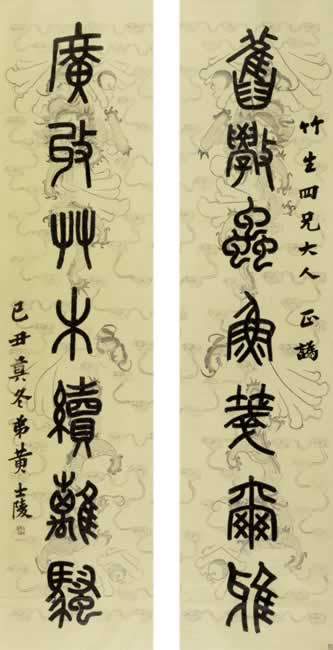 舊斆蟲魚箋爾雅
竹生四兄大人 正譌
廣收艸木續離騷
己丑莫冬弟黄士陵